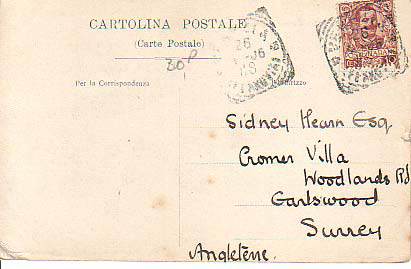 CARTOLINA POSTALE
(Carte Postale)
80P
Per la Corrispondenza
Sidney Hearn Esq
Cromer Villa
Woodlands Rd
Earlswood
Surrey
Angleterre.